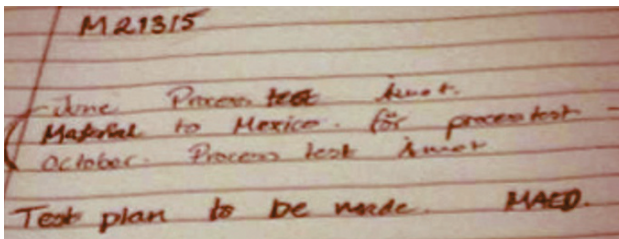 M21315
- June Process test
Material to Mexico. for process test -
October. Process test
Test plan to be made. MAED.